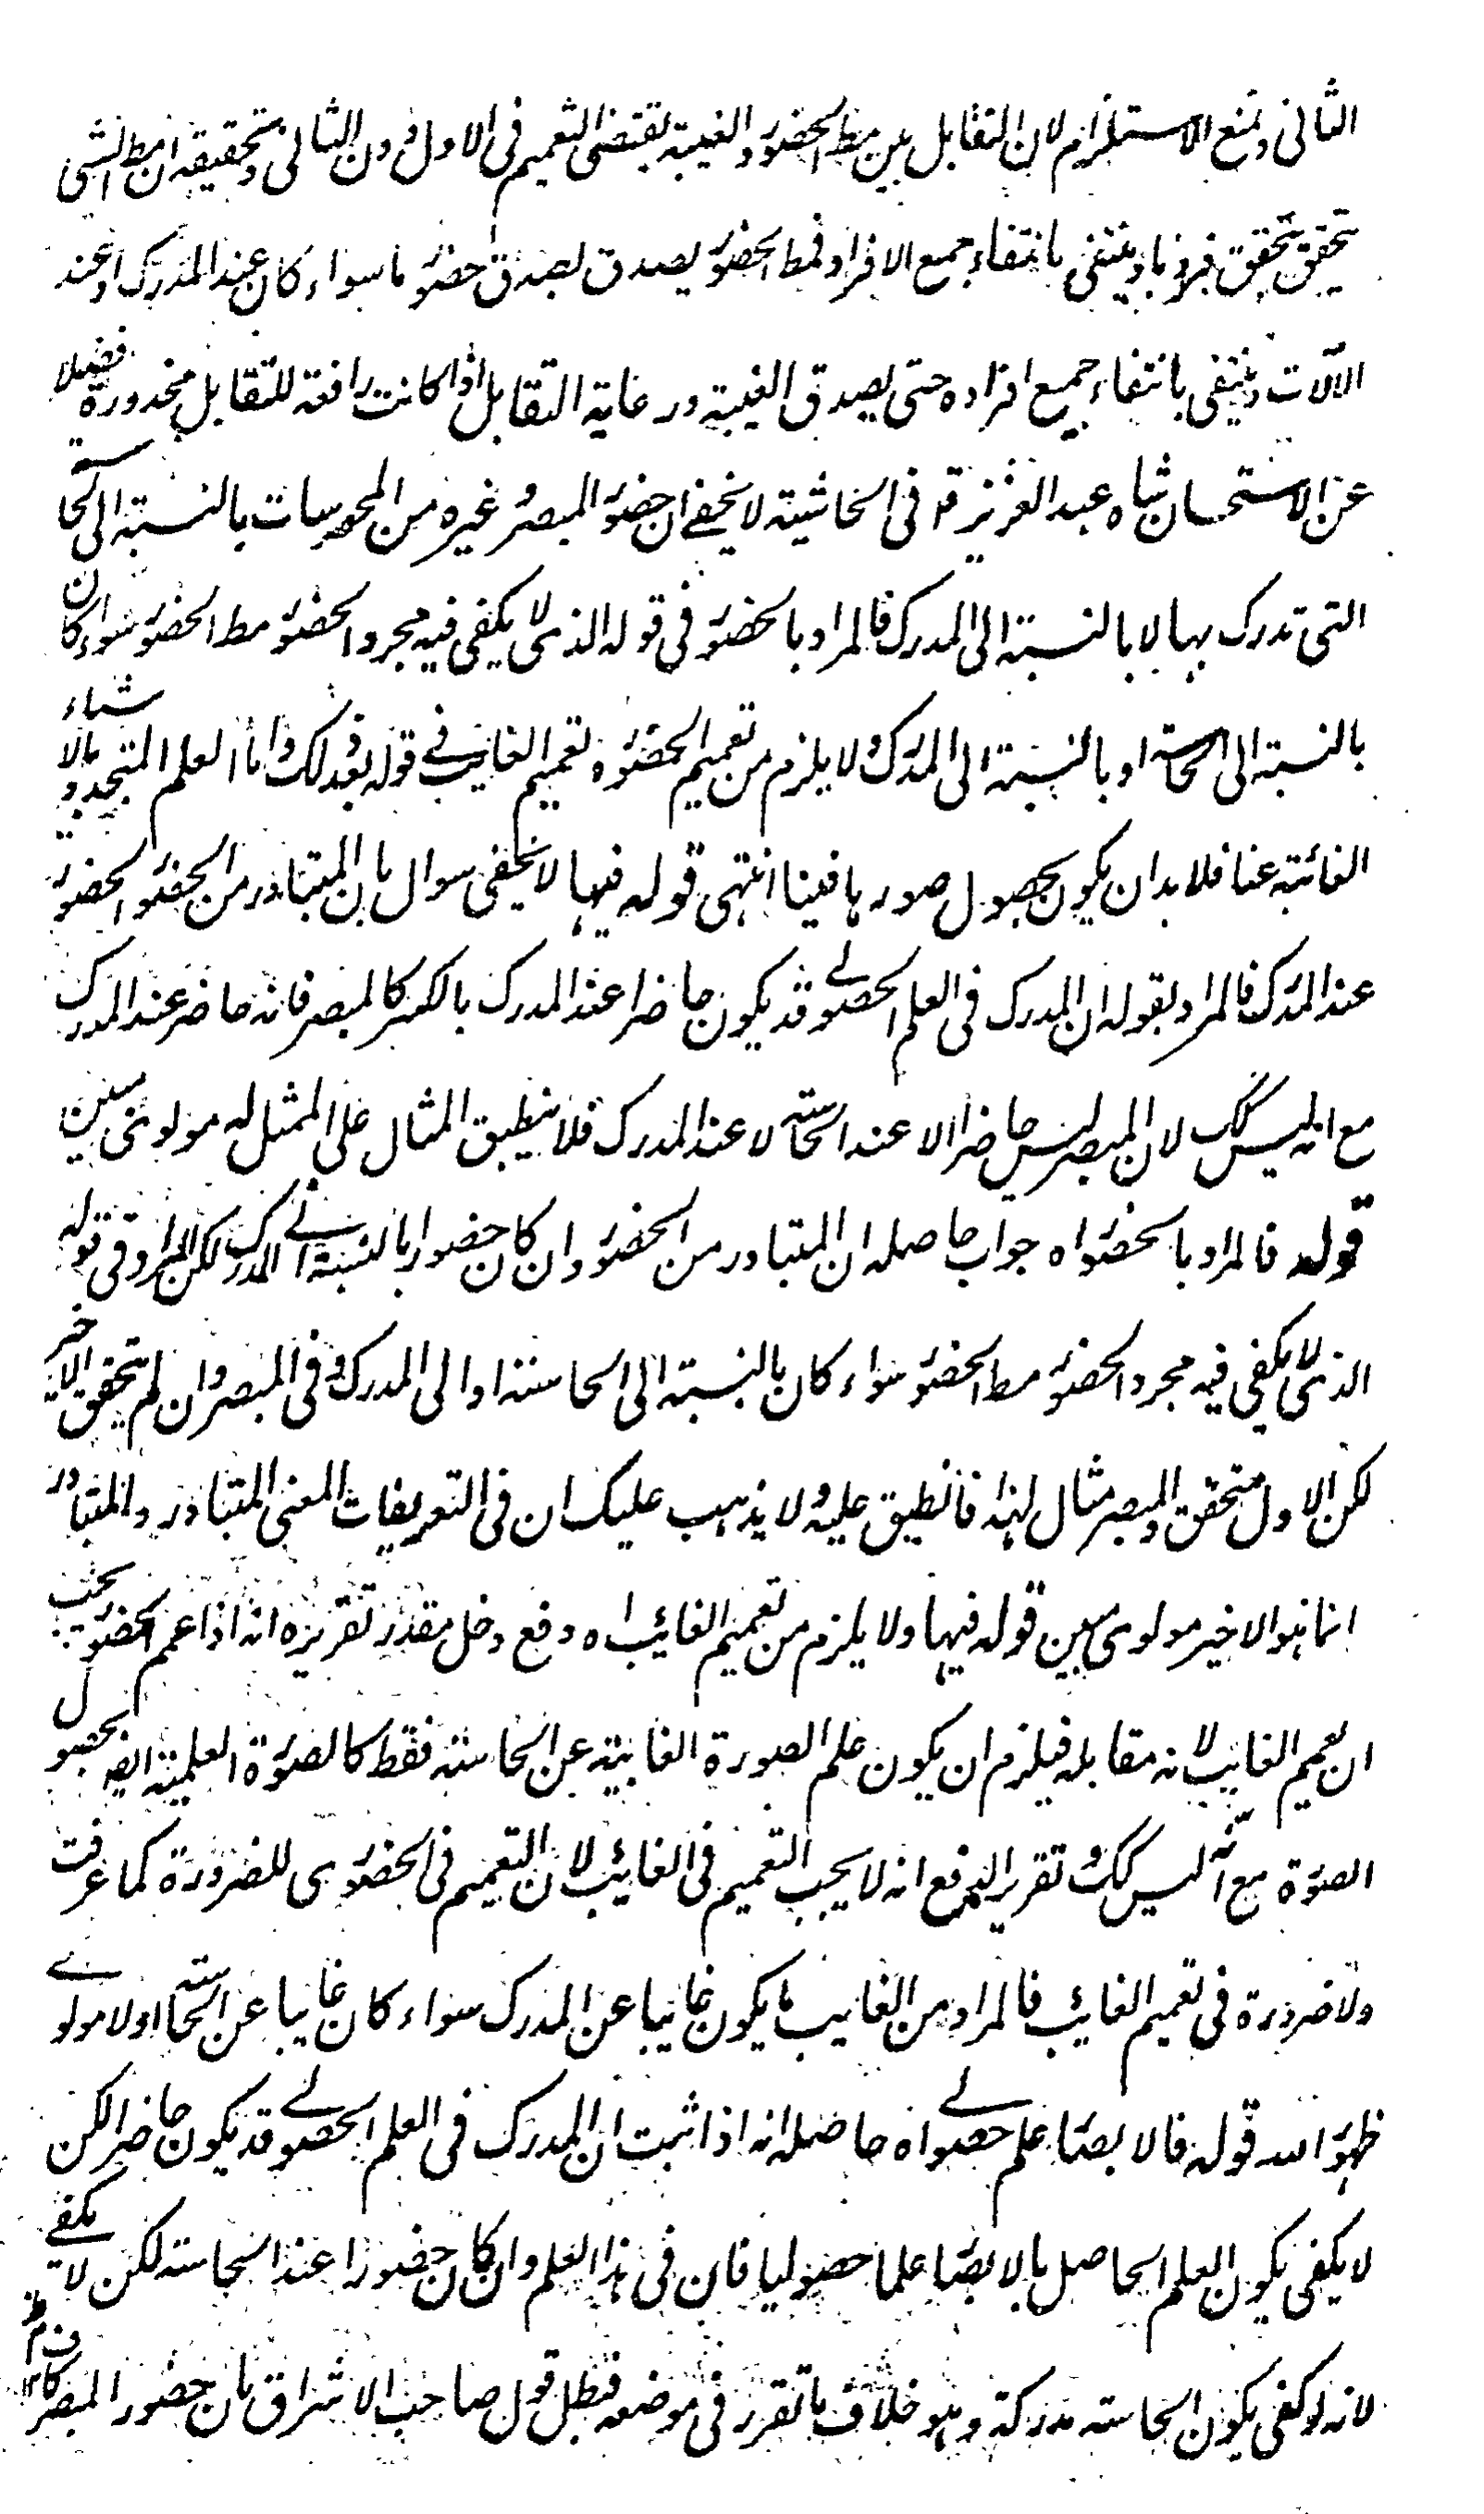 الثانى ونمنع الاستلزام لان التقابل بين مط الحضور والغيبة يقتضى التعميم فى الاول دون الثانى وتحقيقه ان مط الشى
يتحقق بتحقق فرد ما وينتفى بانتفاء جميع الافراد فمط الحضور يصدق بصدق حضور ما سواء كان عند المدرك او عند
الآلات وينتفى بانتفاء جميع افراده حتى يصدق الغيبة ورعاية التقابل اذا كانت رافعة للتقابل مخدورة فضلا
عن الاستحسان شاه عبد العزيز قد فى الحاشية لا يخفے ان حضور المبصر وغيره من المحسوسات بالنسبة الى الحاسة
التى تدرك بها لا بالنسبة الى المدرك فالمراد بالحضور فى قوله الذى لا يكفى فيه مجرد الحضور مط الحضور سواء كان
بالنسبة الى الحاسة او بالنسبة الى المدرك ولا يلزم من تعميم الحضور تعميم الغايب فے قوله بعد ذلك واما العلم المتجدد بالاشياء
الغائبة عنا فلا بد ان يكون بحصول صورها فينا انتهى قوله فيها لا يخفى سوال بان المتبادر من الحضور الحضور
عند المدرك فالمراد بقوله ان المدرك فى العلم الحصولے قد يكون حاضرا عند المدرك بالكسر كالمبصر فانه حاضر عند المدرك
مع انه ليس كك لان المبصر ليس حاضرا الا عند الحاسة لا عند المدرك فلا ينطبق المثال على الممثل له مولوى مبين
قوله فالمراد بالحضور اه جواب حاصله ان المتبادر من الحضور وان كان حضورا بالنسبة الى المدرك لكن المراد فى قوله
الذى لا يكفى فيه مجرد الحضور مط الحضور سواء كان بالنسبة الى الحاسة او الى المدرك وفى المبصر وان لم يتحقق الاخير
لكن الاول متحقق والمبصر مثال لهذا فانطبق عليه ولا يذهب عليك ان فى التعريفات المعنى المتبادر والمتبادر
انما هو الاخير مولوى مبين قوله فيها ولا يلزم من تعميم الغائب اه دفع دخل مقدر تقريره انه اذا عمم الحضور يجب
ان يعمم الغايب لانه مقابله فيلزم ان يكون علم الصورة الغايبة عن الحاسة فقط كالصورة العلمية ايضا بحصول
الصورة مع انه ليس كك وتقرير الدفع انه لا يجب التعميم فى الغائب لان التعميم فى الحضورى للضرورة كما عرفت
ولا ضرورة فى تعميم الغايب فالمراد من الغايب ما يكون غايبا عن المدرك سواء كان غايبا عن الحاسة اولا مولوے
ظهور الله قوله فالابصار علم حصولے اه حاصله انه اذا ثبت ان المدرك فى العلم الحصولے قد يكون حاضرا لكن
لا يكفى يكون العلم الحاصل بالابصار علما حصوليا فان فى هذا العلم وان كان حضورا عند الحاسة لكن لا يكفے
لانه لو كفى يكون الحاسة مدركة وهو خلاف ما تقرر فى موضعه فبطل قول صاحب الاشراق بان حضور المبصر كاف